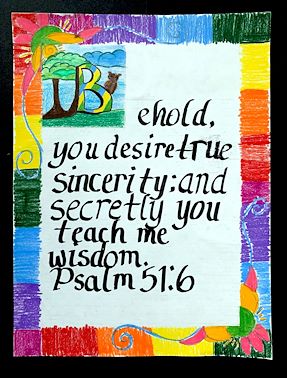 Behold,
you desire true
sincerity; and
secretly you
teach me
wisdom.
Psalm 51:6